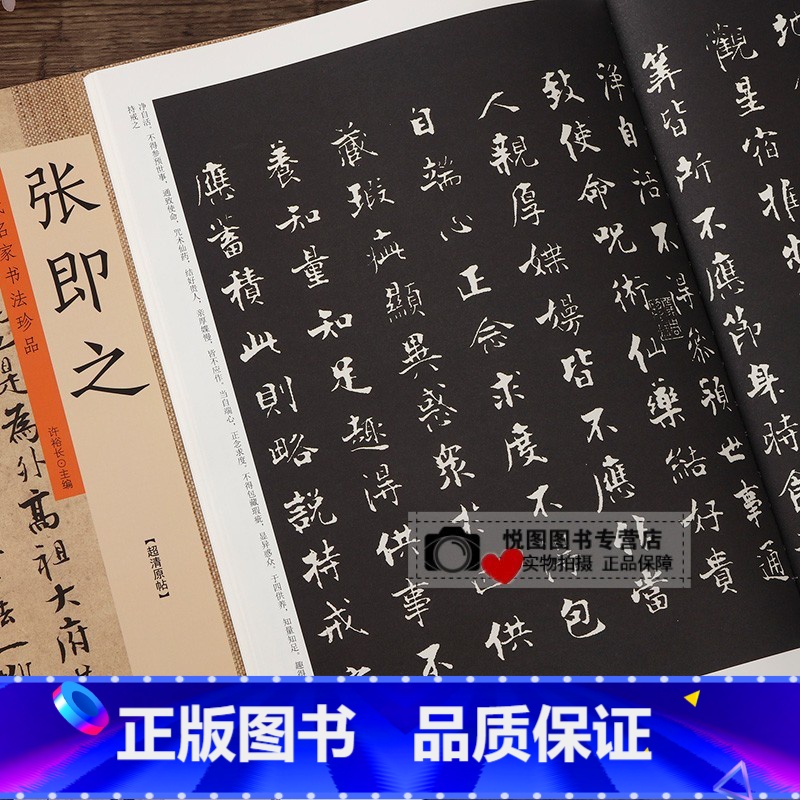 张即之
名家书法珍品
许裕长⊙主编
【超清原帖】
是為外高祖大府
法一
地
觀星宿推步
筭皆所不應節身時食
淨自活不得參預世事通
致使命呪術仙藥結好貴
人親厚媟嫚皆不應作當
自端心正念求度不得包
藏瑕疵顯異惑衆供
養知量知足趣得供事不
應蓄積此則略說持戒
净自活，不得参预世事，通致使命，咒术仙药，结好贵人，亲厚媟嫚，皆不应作，当自端心，正念求度，不得包藏瑕疵，显异惑众，于四供养，知量知足，趣得
持戒之
悦图图书专营店
实物拍摄 正品保障
正版图书 品质保证